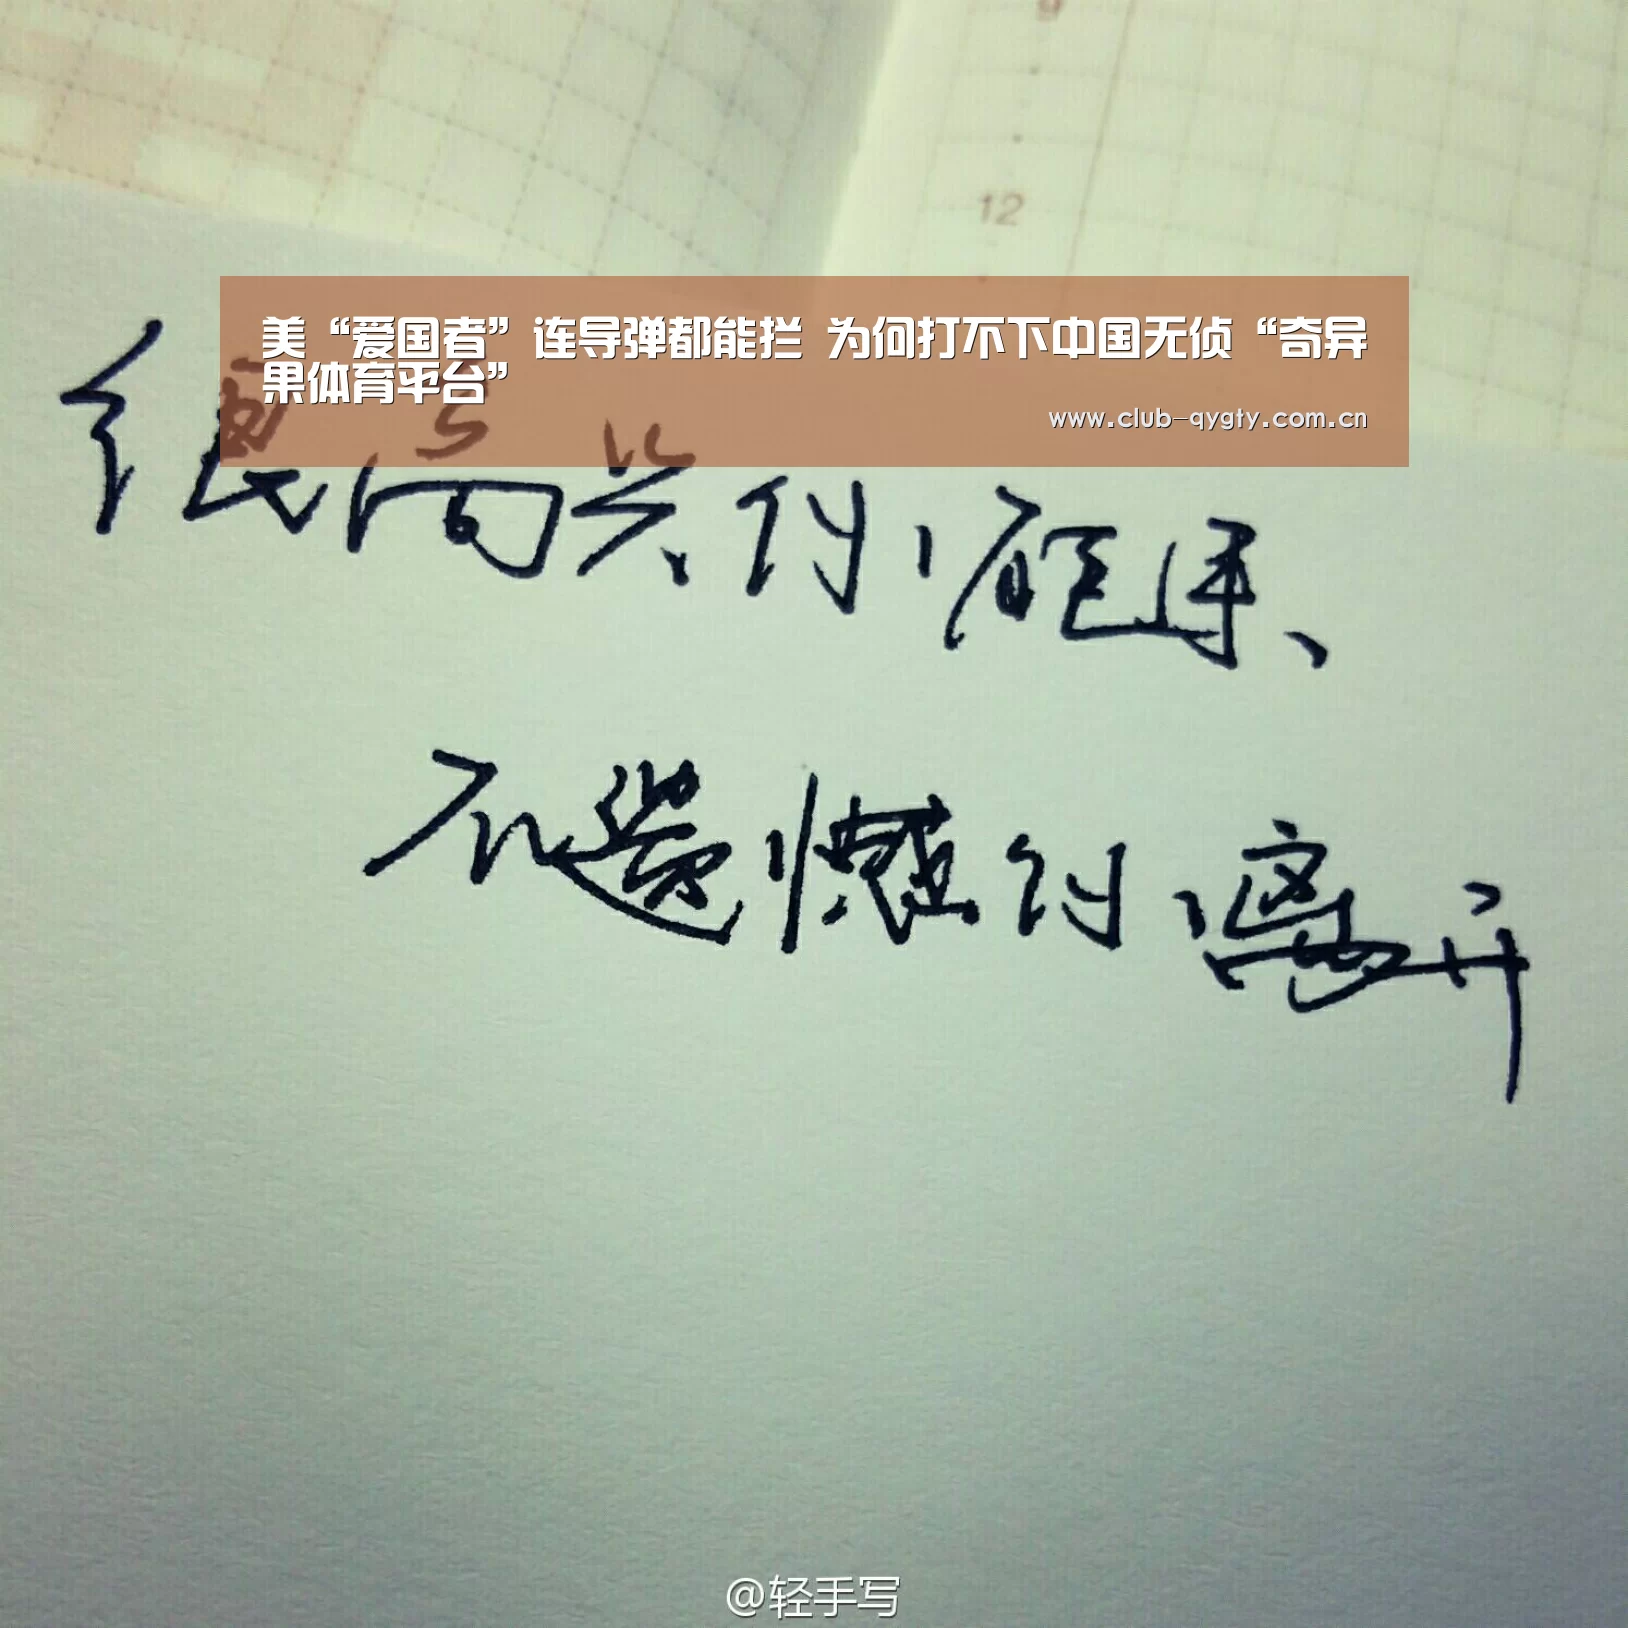 12
美“爱国者”连导弹都能拦 为何打不下中国无侦“奇异
果体育平台”
www.club-qygty.com.cn
很高兴你、能来、
不遗憾你、离开
@轻手写